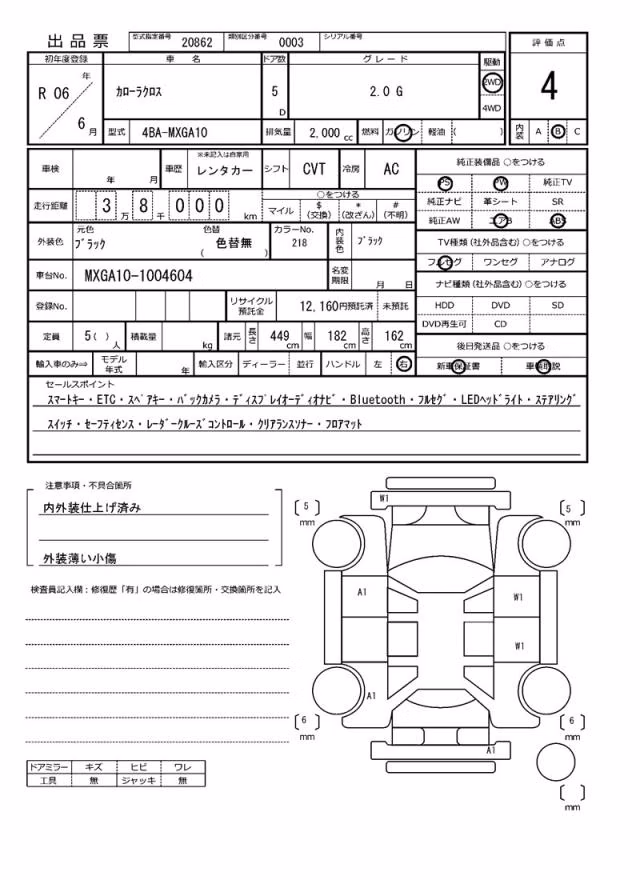 出品票 型式指定番号 20862 類別区分番号 0003 シリアル番号
初年度登録 車名 ドア数 グレード 駆動 評価点
R 06 年 6 月 カローラクロス 5 D 2.0 G 2WD 4WD 4
型式 4BA-MXGA10 排気量 2,000 cc 燃料 ガソリン 軽油 ( ) 内装 A B C
車検 年 月 車歴 ※未記入は自家用 レンタカー シフト CVT 冷房 AC 純正装備品 ○をつける
PS PW 純正TV
走行距離 3 万 8 千 0 0 0 km ○をつける マイル $ (交換) * (改ざん) # (不明) 純正ナビ 革シート SR
純正AW エアB ABS
外装色 元色 ブラック 色替 ( 色替無 ) カラーNo. 218 内装色 ブラック TV種類 (社外品含む) ○をつける
フルセグ ワンセグ アナログ
車台No. MXGA10-1004604 名変期限 月 日 ナビ種類 (社外品含む) ○をつける
登録No. リサイクル預託金 12,160円預託済 未預託 HDD DVD SD
DVD再生可 CD
定員 5( ) 人 積載量 kg 諸元 長さ 449 cm 幅 182 cm 高さ 162 cm 後日発送品 ○をつける
輸入車のみ⇒ モデル年式 年 輸入区分 ディーラー 並行 ハンドル 左 右 新車保証書 車輌取説
セールスポイント
スマートキー・ETC・スペアキー・バックカメラ・ディスプレイオーディオナビ・Bluetooth・フルセグ・LEDヘッドライト・ステアリング
スイッチ・セーフティセンス・レーダークルーズコントロール・クリアランスソナー・フロアマット
注意事項・不具合箇所
内外装仕上げ済み
外装薄い小傷
検査員記入欄：修復歴「有」の場合は修復箇所・交換箇所を記入
ドアミラー キズ ヒビ ワレ
工具 無 ジャッキ 無
W1
5 mm 5 mm
A1 W1
W1
A1
6 mm 6 mm
A1
mm